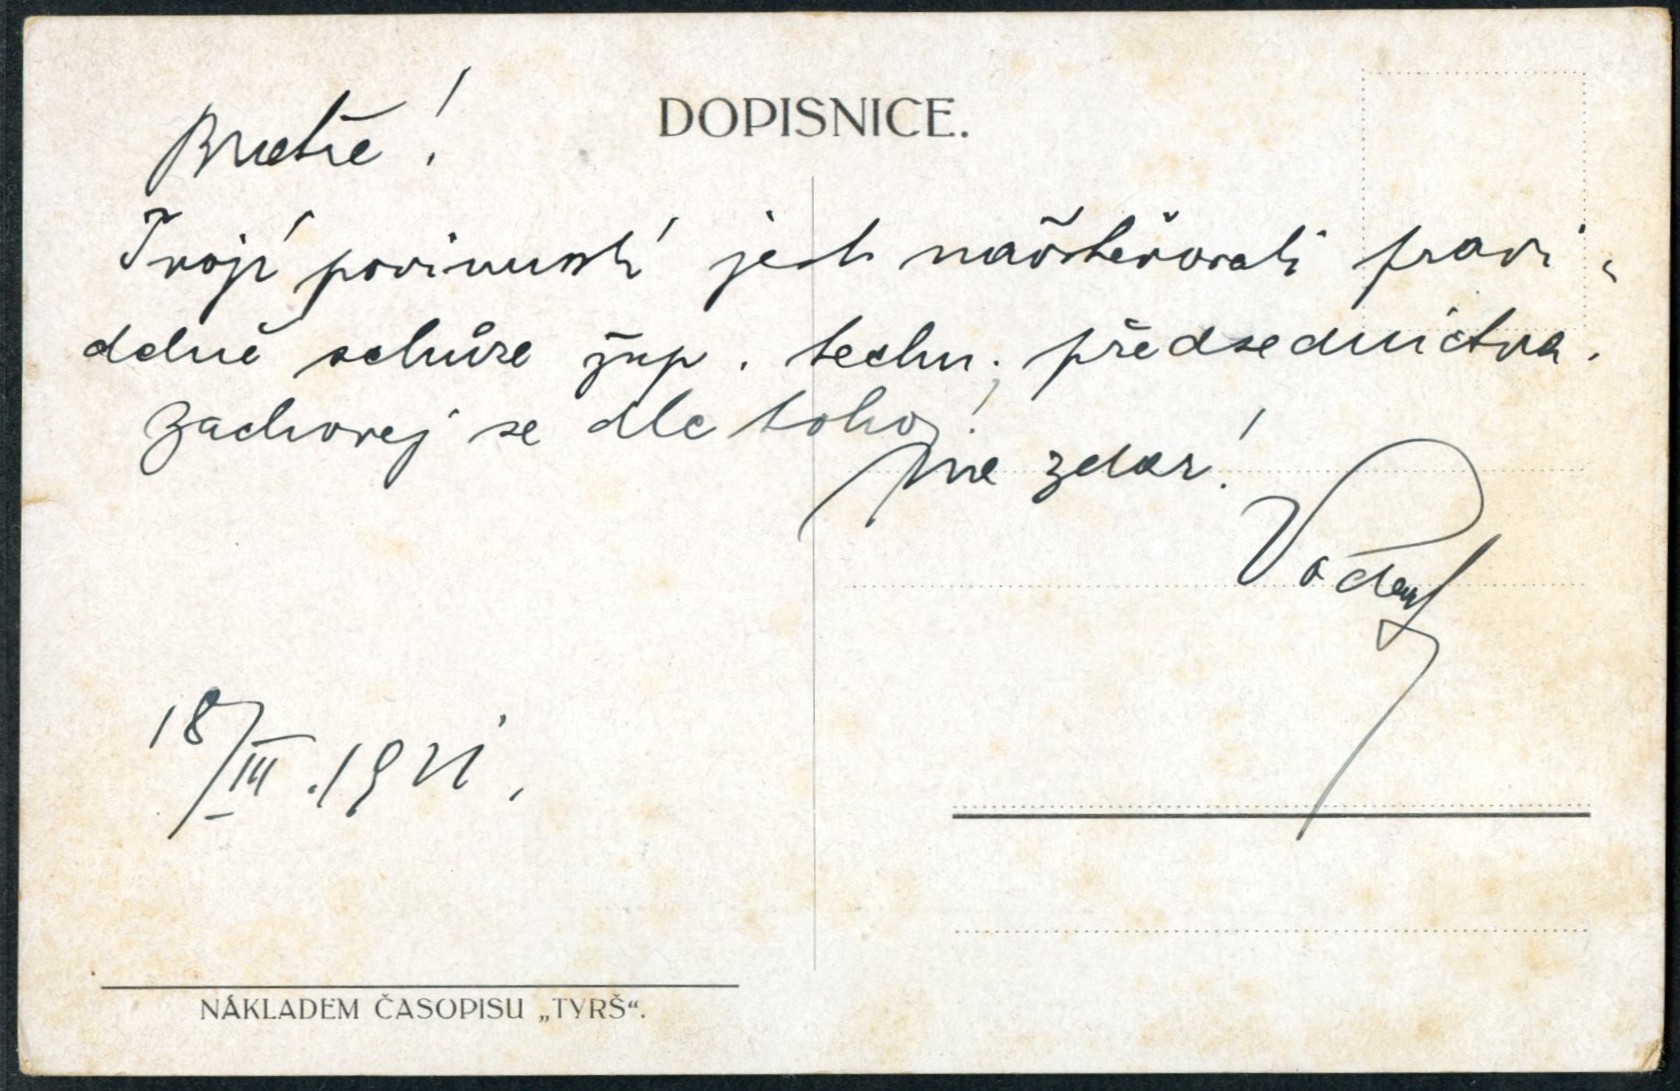 DOPISNICE.
Bratře!
Tvojí povinností jest navštěvovati pravi-
delně schůze žup. techn. předsednictva.
Zachovej se dle toho!
Na zdar!
18/III. 1921.
NÁKLADEM ČASOPISU „TYRŠ“.